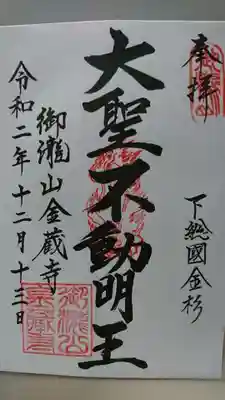 奉拝
下総國金杉
大聖不動明王
御瀧山金蔵寺
令和二年十二月十三日